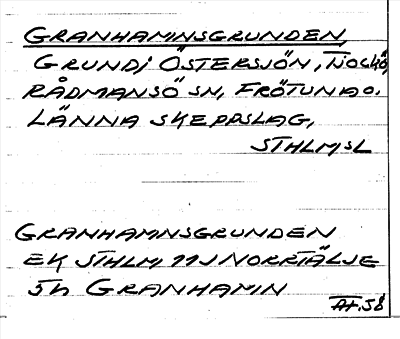 GRANHAMNSGRUNDEN,
GRUND i ÖSTERSJÖN,
RÅDMANSÖ SN, FRÖTUNA O.
LÄNNA SKEPPSLAG,
STHLMSL
GRANHAMNSGRUNDEN
EK STHLM 11J NORRTÄLJE
5h GRANHAMN